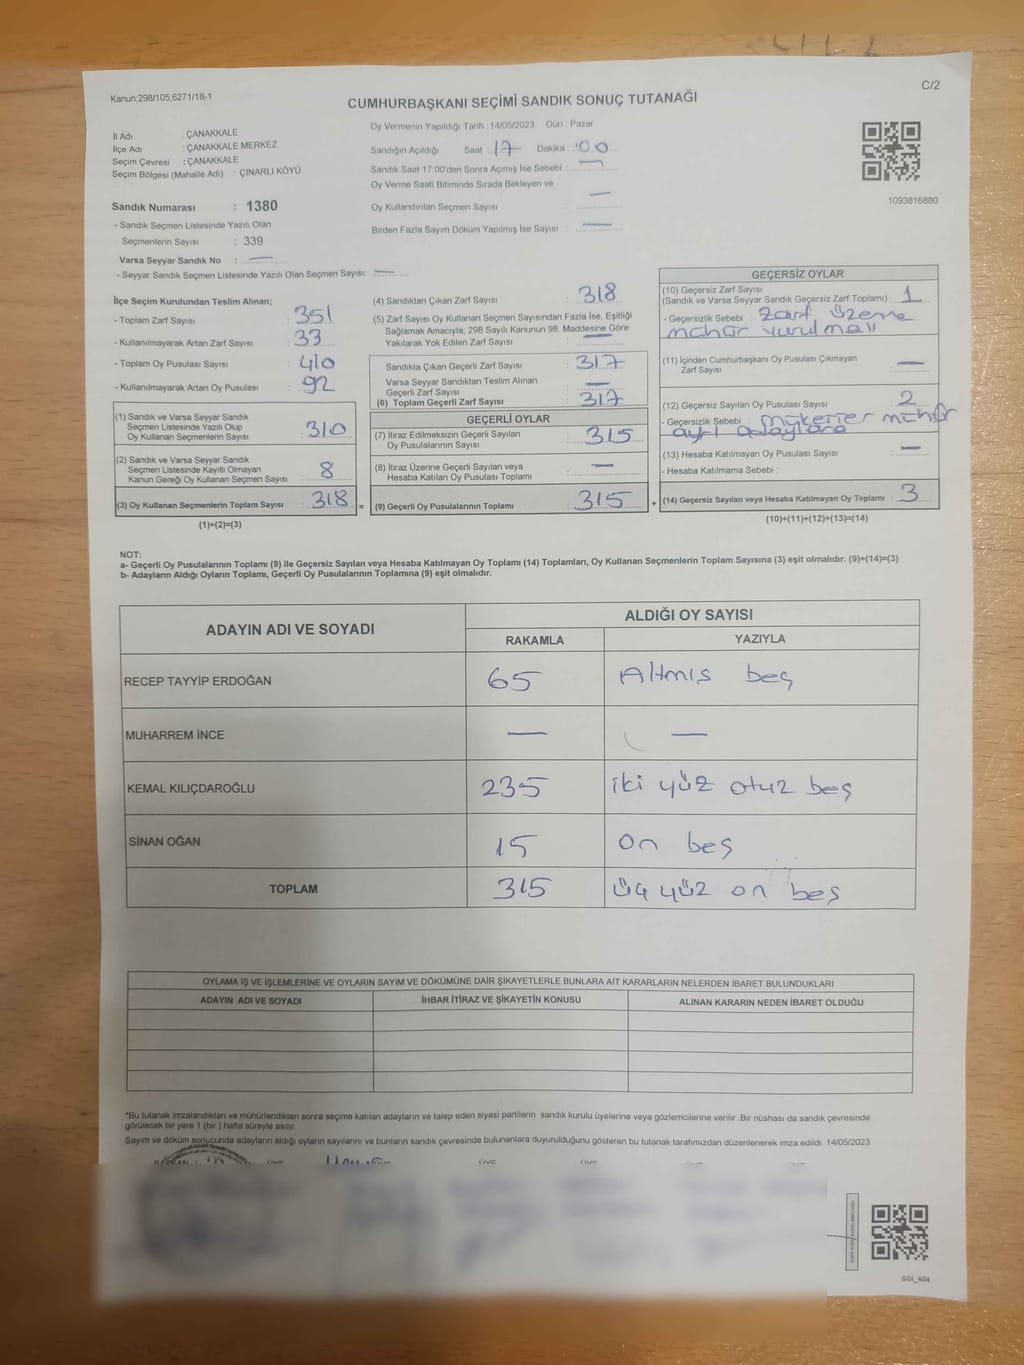 C/2
Kanun;298/105;6271/18-1
CUMHURBAŞKANI SEÇİMİ SANDIK SONUÇ TUTANAĞI
İl Adı : ÇANAKKALE
İlçe Adı : ÇANAKKALE MERKEZ
Seçim Çevresi : ÇANAKKALE
Seçim Bölgesi (Mahalle Adı) : ÇINARLI KÖYÜ
Oy Vermenin Yapıldığı Tarih : 14/05/2023 Gün : Pazar
Sandığın Açıldığı Saat : 17 Dakika : 00
Sandık Saat 17:00'den Sonra Açımış İse Sebebi : —
Oy Verme Saati Bitiminde Sırada Bekleyen ve
Oy Kullandırılan Seçmen Sayısı : —
Birden Fazla Sayım Döküm Yapılmış İse Sayısı : —
1093816880
Sandık Numarası : 1380
- Sandık Seçmen Listesinde Yazılı Olan
Seçmenlerin Sayısı : 339
Varsa Seyyar Sandık No : —
- Seyyar Sandık Seçmen Listesinde Yazılı Olan Seçmen Sayısı: —
İlçe Seçim Kurulundan Teslim Alınan;
- Toplam Zarf Sayısı : 351
- Kullanılmayarak Artan Zarf Sayısı : 33
- Toplam Oy Pusulası Sayısı : 410
- Kullanılmayarak Artan Oy Pusulası : 92
(1) Sandık ve Varsa Seyyar Sandık
Seçmen Listesinde Yazılı Olup
Oy Kullanan Seçmenlerin Sayısı : 310
(2) Sandık ve Varsa Seyyar Sandık
Seçmen Listesinde Kayıtlı Olmayan
Kanun Gereği Oy Kullanan Seçmen Sayısı : 8
(3) Oy Kullanan Seçmenlerin Toplam Sayısı : 318 =
(1)+(2)=(3)
(4) Sandıktan Çıkan Zarf Sayısı : 318
(5) Zarf Sayısı Oy Kullanan Seçmen Sayısından Fazla İse, Eşitliği
Sağlamak Amacıyla, 298 Sayılı Kanunun 98. Maddesine Göre
Yakılarak Yok Edilen Zarf Sayısı : —
Sandıkta Çıkan Geçerli Zarf Sayısı : 317
Varsa Seyyar Sandıktan Teslim Alınan
Geçerli Zarf Sayısı : —
(6) Toplam Geçerli Zarf Sayısı : 317
GEÇERLİ OYLAR
(7) İtiraz Edilmeksizin Geçerli Sayılan
Oy Pusulalarının Sayısı : 315
(8) İtiraz Üzerine Geçerli Sayılan veya
Hesaba Katılan Oy Pusulası Toplamı : —
(9) Geçerli Oy Pusulalarının Toplamı : 315 +
GEÇERSİZ OYLAR
(10) Geçersiz Zarf Sayısı
(Sandık ve Varsa Seyyar Sandık Geçersiz Zarf Toplamı) : 1
- Geçersizlik Sebebi : Zarf üzerine
mühür vurulması
(11) İçinden Cumhurbaşkanı Oy Pusulası Çıkmayan
Zarf Sayısı : —
(12) Geçersiz Sayılan Oy Pusulası Sayısı : 2
- Geçersizlik Sebebi : mükerrer mühür
ayrı adaylara
(13) Hesaba Katılmayan Oy Pusulası Sayısı : —
- Hesaba Katılmama Sebebi :
(14) Geçersiz Sayılan veya Hesaba Katılmayan Oy Toplamı : 3
(10)+(11)+(12)+(13)=(14)
NOT:
a- Geçerli Oy Pusulalarının Toplamı (9) ile Geçersiz Sayılan veya Hesaba Katılmayan Oy Toplamı (14) Toplamları, Oy Kullanan Seçmenlerin Toplam Sayısına (3) eşit olmalıdır. (9)+(14)=(3)
b- Adayların Aldığı Oyların Toplamı, Geçerli Oy Pusulalarının Toplamına (9) eşit olmalıdır.
ADAYIN ADI VE SOYADI ALDIĞI OY SAYISI
RAKAMLA YAZIYLA
RECEP TAYYİP ERDOĞAN 65 Altmış beş
MUHARREM İNCE — —
KEMAL KILIÇDAROĞLU 235 iki yüz otuz beş
SİNAN OĞAN 15 on beş
TOPLAM 315 üç yüz on beş
OYLAMA İŞ VE İŞLEMLERİNE VE OYLARIN SAYIM VE DÖKÜMÜNE DAİR ŞİKAYETLERLE BUNLARA AİT KARARLARIN NELERDEN İBARET BULUNDUKLARI
ADAYIN ADI VE SOYADI İHBAR İTİRAZ VE ŞİKAYETİN KONUSU ALINAN KARARIN NEDEN İBARET OLDUĞU
*Bu tutanak imzalandıktan ve mühürlendikten sonra seçime katılan adayların ve talep eden siyasi partilerin sandık kurulu üyelerine veya gözlemcilerine verilir. Bir nüshası da sandık çevresinde
görülecek bir yere 1 (bir ) hafta süreyle asılır.
Sayım ve döküm sonucunda adayların aldığı oyların sayılarını ve bunların sandık çevresinde bulunanlara duyurulduğunu gösteren bu tutanak tarafımızdan düzenlenerek imza edildi. 14/05/2023
SSI_404